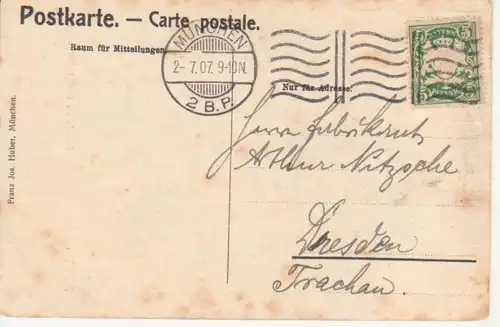 Postkarte. — Carte postale.
Raum für Mitteilungen
MÜNCHEN
2- 7. 07. 9-10N.
2 B.P.
Nur für Adresse.
5 5
5 5
Franz Jos. Huber, München.
Herrn
Arthur Nitzsche
Dresden
Trachau.